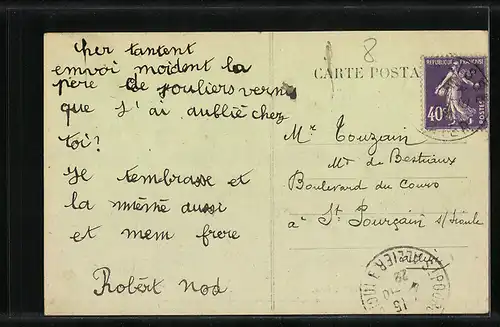 cher tantent
envoi moident la
père de souliers vernis
que j'ai aublié chez
toi?
Je tembrasse et
la même aussi
et mem frere
Robert nod
8
CARTE POSTA
REPUBLIQUE FRANÇAISE
40c
POSTES
Mr Touzain
Mr de Bestiaux
Boulevard du Cours
à St Pourçain s/Sioule
Allier
ALLIER
15